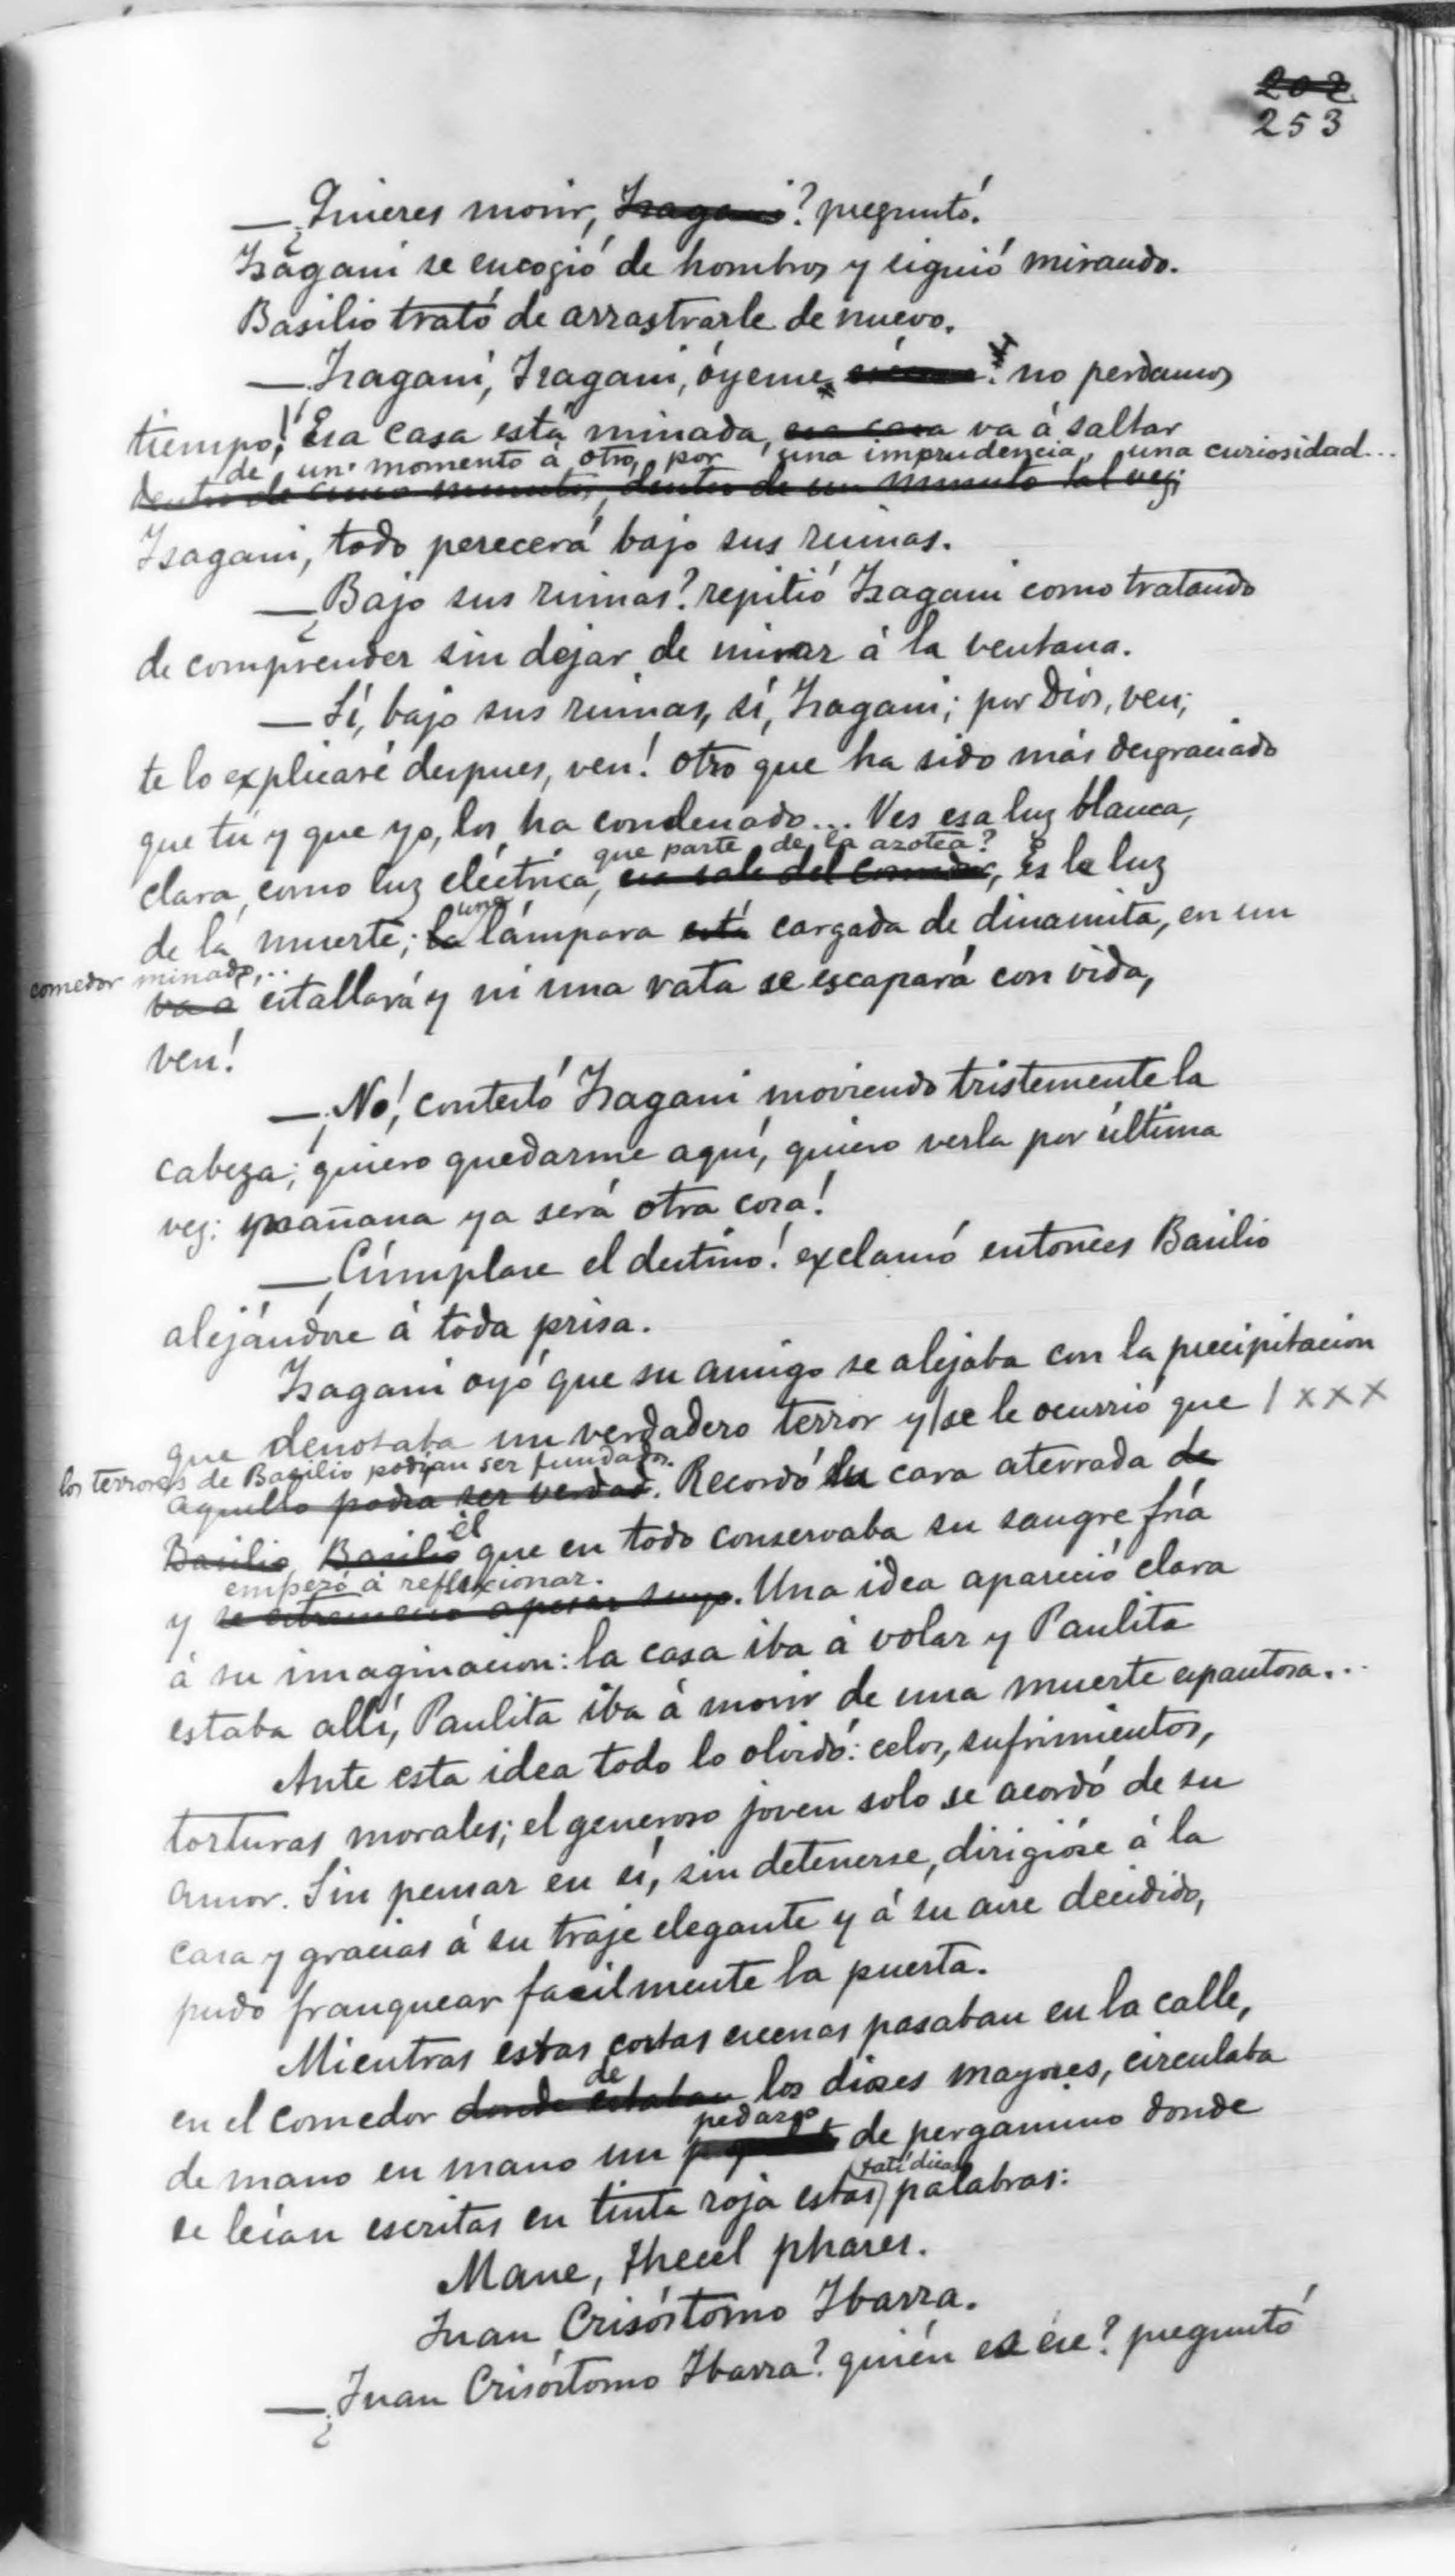 202
253
— ¿Quieres morir, Isagani? preguntó.
Isagani se encogió de hombros y siguió mirando.
Basilio trató de arrastrarle de nuevo.
— Isagani, Isagani, óyeme, no perdamos
tiempo! Esa casa está minada, esa casa va á saltar
de un momento á otro, por una imprudencia, una curiosidad...
dentro de cinco minutos, dentro de un minuto tal vez;
Isagani, todo perecerá bajo sus ruinas.
— ¿Bajo sus ruinas? repitió Isagani como tratando
de comprender sin dejar de mirar á la ventana.
— Sí, bajo sus ruinas, sí, Isagani; por Dios, ven;
te lo explicaré despues, ven! otro que ha sido más desgraciado
que tú y que yo, los ha condenado... Ves esa luz blanca,
que parte de la azotea?
clara, como luz eléctrica, esa sale del comedor, es la luz
una
de la muerte; la lámpara está cargada de dinamita, en un
comedor minado,..
va a estallará y ni una rata se escapará con vida,
ven!
— ¡No! contestó Isagani moviendo tristemente la
cabeza; quiero quedarme aquí, quiero verla por última
vez: mañana ya será otra cosa!
— ¡Cúmplase el destino! exclamó entonces Basilio
alejándose á toda prisa.
Isagani oyó que su amigo se alejaba con la precipitacion
que denotaba un verdadero terror y/se le ocurrió que / xxx
los terrores de Basilio podían ser fundados.
aquello podia ser verdad. Recordó su cara aterrada de
él
Basilio Basilio que en todo conservaba su sangre fría
empezó á reflexionar.
y se estremeció apesar suyo. Una idea apareció clara
á su imaginacion: la casa iba á volar y Paulita
estaba allí, Paulita iba á morir de una muerte espantosa...
Ante esta idea todo lo olvidó: celos, sufrimientos,
torturas morales; el generoso joven solo se acordó de su
amor. Sin pensar en sí, sin detenerse, dirigióse á la
casa y gracias á su traje elegante y á su aire decidido,
pudo franquear facilmente la puerta.
Mientras estas cortas escenas pasaban en la calle,
de
en el comedor donde estaban los dioses mayores, circulaba
pedazo
de mano en mano un de pergamino donde
fatídicas
se leían escritas en tinta roja estas palabras:
Mane, thecel phares.
Juan Crisóstomo Ibarra.
— ¿Juan Crisóstomo Ibarra? quién es ése? preguntó